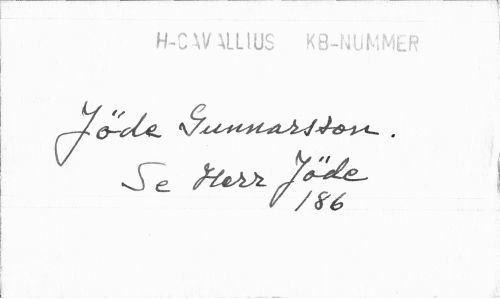 H-CAVALLIUS KB-NUMMER
Jöde Gunnarsson.
Se Herr Jöde
186